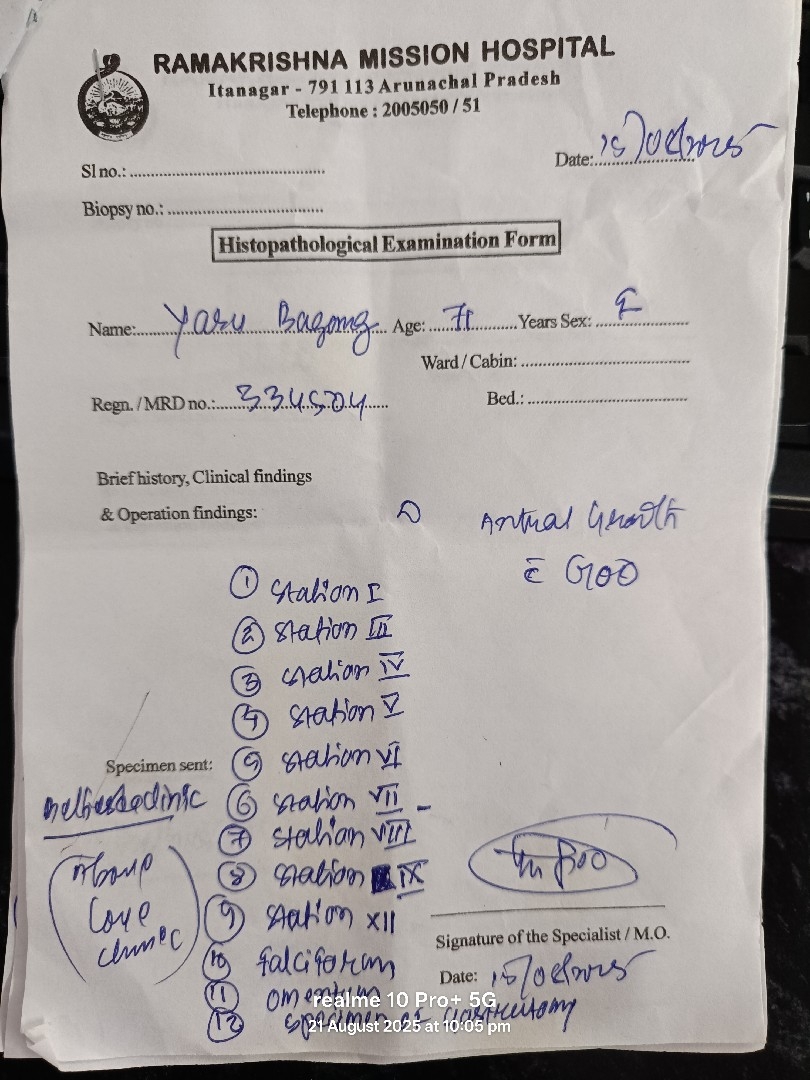 RAMAKRISHNA MISSION HOSPITAL
Itanagar - 791 113 Arunachal Pradesh
Telephone : 2005050 / 51
Date: 15/08/2025
Sl no.:
Biopsy no.:
Histopathological Examination Form
Name: Yasu Bagang Age: 71 Years Sex: F
Ward / Cabin:
Regn. / MRD no.: 334504
Bed.:
Brief history, Clinical findings
& Operation findings:
Antral Growth
c̄ GOO
① Station I
② Station III
③ Station IV
④ Station V
Specimen sent:
⑤ Station VI
⑥ Station VII -
⑦ Station VIII
⑧ Station IX
⑨ Station XII
⑩ Falciform
⑪ omentum
⑫ specimen of Gastrectomy
clinic
Signature of the Specialist / M.O.
Date: 15/08/2025
realme 10 Pro+ 5G
21 August 2025 at 10:05 pm